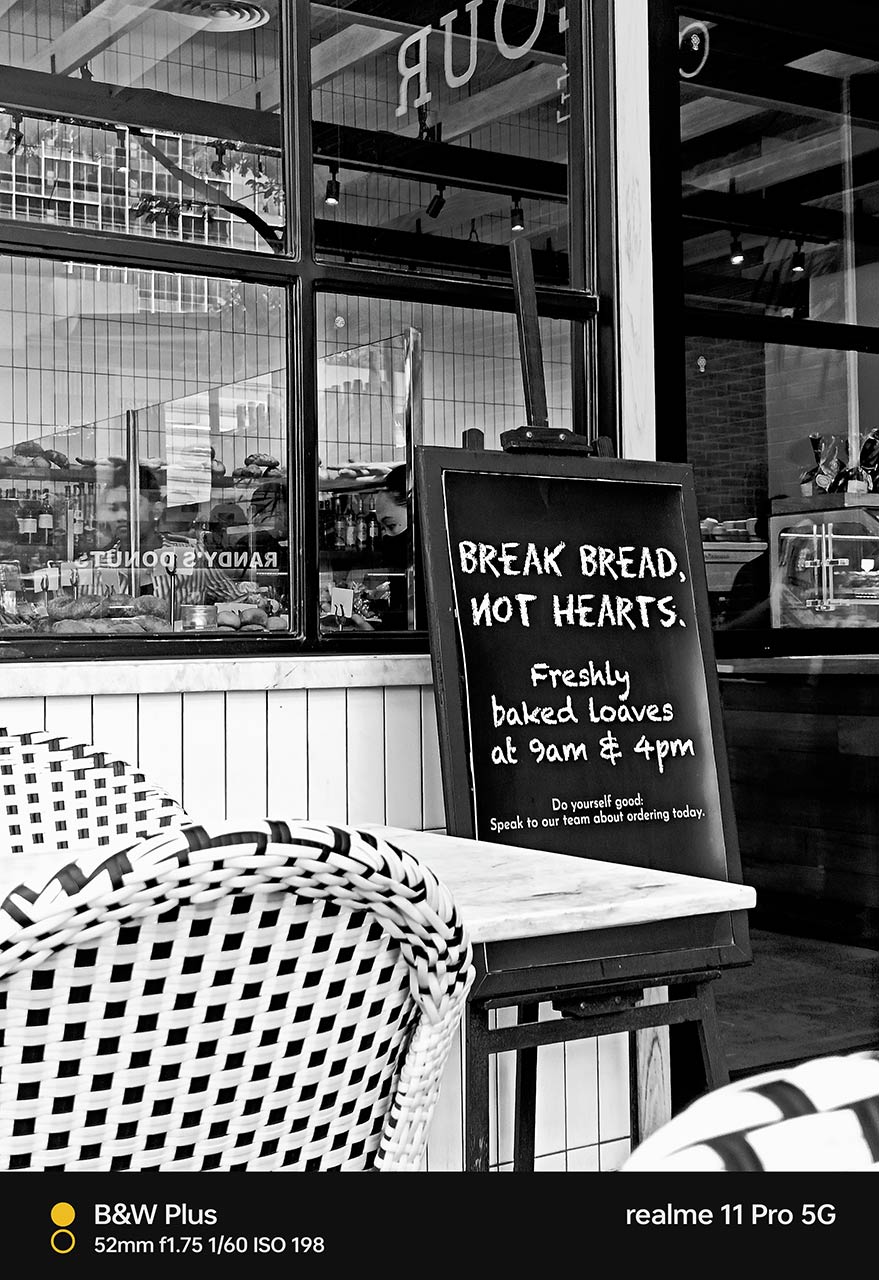 OUR
RANDY'S DONUTS
BREAK BREAD,
NOT HEARTS.
Freshly
baked loaves
at 9am & 4pm
Do yourself good:
Speak to our team about ordering today.
B&W Plus
52mm f1.75 1/60 ISO 198
realme 11 Pro 5G